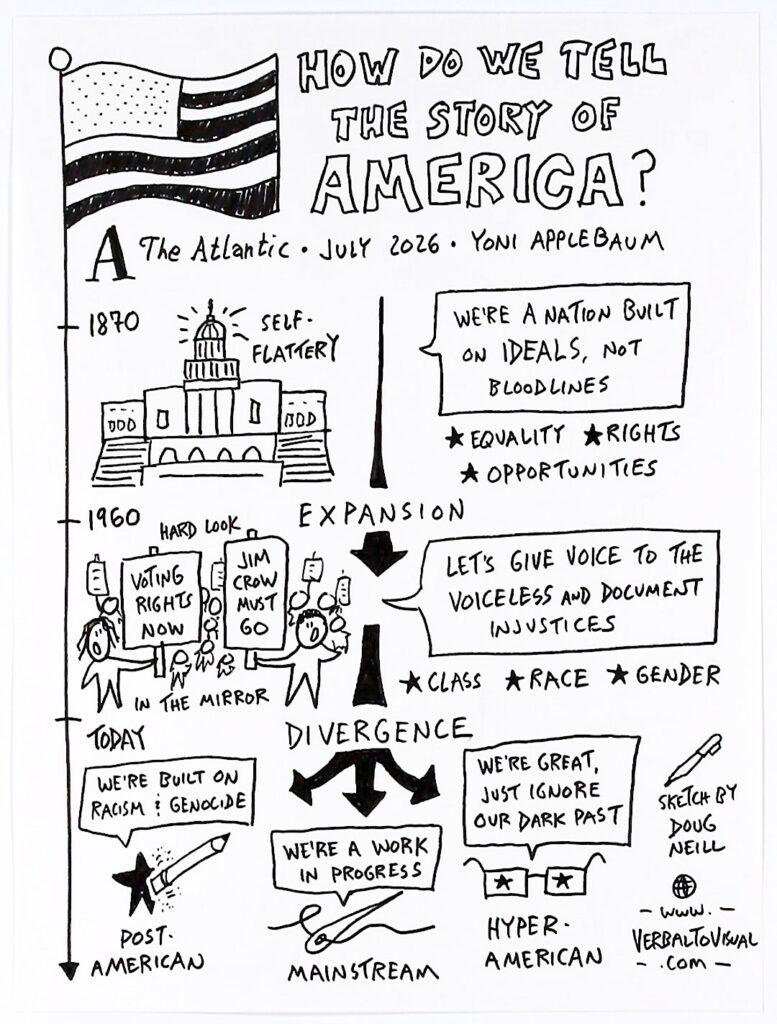 HOW DO WE TELL
THE STORY OF
AMERICA?
A The Atlantic • JULY 2026 • YONI APPLEBAUM
1870
SELF-
FLATTERY
WE'RE A NATION BUILT
ON IDEALS, NOT
BLOODLINES
★ EQUALITY ★ RIGHTS
★ OPPORTUNITIES
1960
EXPANSION
HARD LOOK
VOTING
RIGHTS
NOW
JIM
CROW
MUST
GO
IN THE MIRROR
LET'S GIVE VOICE TO THE
VOICELESS AND DOCUMENT
INJUSTICES
★ CLASS ★ RACE ★ GENDER
TODAY
DIVERGENCE
WE'RE BUILT ON
RACISM & GENOCIDE
POST-
AMERICAN
WE'RE A WORK
IN PROGRESS
MAINSTREAM
WE'RE GREAT,
JUST IGNORE
OUR DARK PAST
HYPER-
AMERICAN
SKETCH BY
DOUG
NEILL
- WWW. -
VERBALTOVISUAL
- .COM -